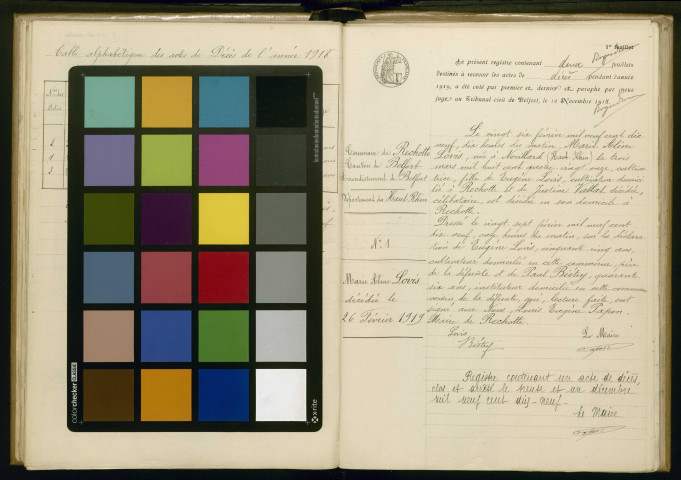 Table alphabétique des actes de Décès de l'année 1918
colorchecker CLASSIC
x-rite
1er feuillet
Le présent registre contenant deux feuillets
destinés à recevoir les actes de décès pendant l'année
1919, a été coté par premier et dernier et paraphé par nous
juge au Tribunal civil de Belfort, le 10 Novembre 1918.
Commune de Rechotte
Canton de Belfort
Arrondissement de Belfort
Département du Haut-Rhin
N° 1
Marie Adeline Lovis
décédée le
26 Février 1919
Le vingt six février mil neuf cent dix
neuf, dix heures du matin, Marie Adeline
Lovis, née à Novillard (Haut-Rhin) le trois
mars mil huit cent quatre vingt onze, cultiva
trice, fille de Eugène Lovis, cultivateur domici
lié à Rechotte et de Justine Vallat décédée,
célibataire, est décédée en son domicile à
Rechotte.
Dressé le vingt sept février mil neuf cent
dix neuf, onze heures du matin, sur la déclara
tion de Eugène Lovis, cinquante cinq ans,
cultivateur domicilié en cette commune, père
de la défunte et de Paul Biétry, quarante
six ans, instituteur domicilié en cette commune
voisin de la défunte, qui, lecture faite, ont
signé avec Nous, Louis Eugène
Maire de Rechotte.
Lovis
Biétry
Le Maire
Registre contenant un acte de décès,
clos et arrêté le trente et un décembre
mil neuf cent dix-neuf
Le Maire